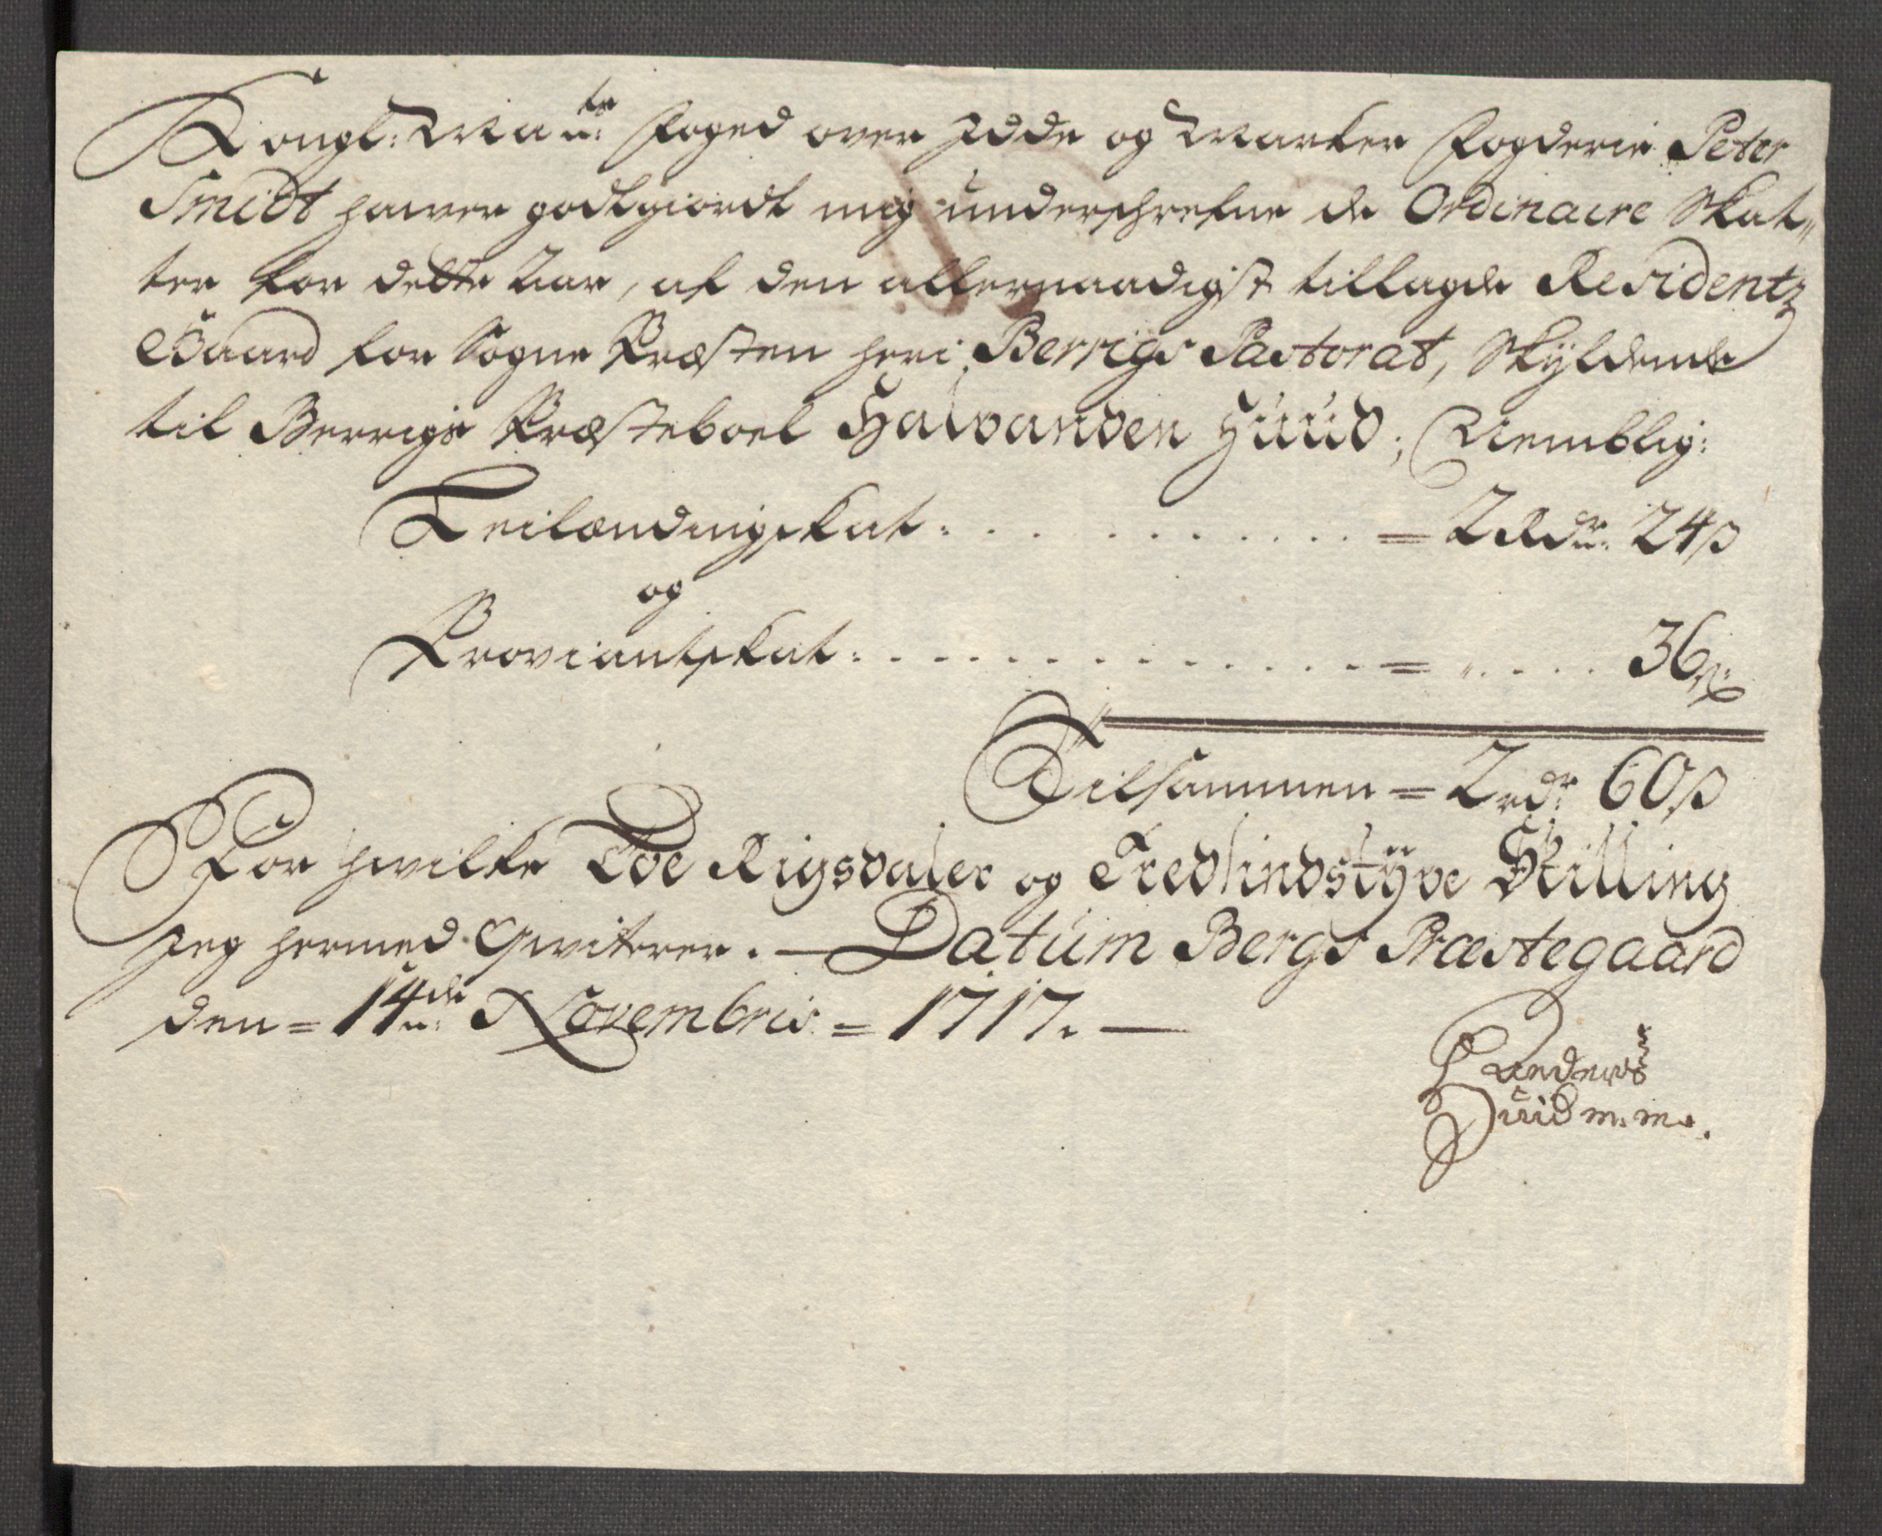 Kongl: Maÿts: foged over Idde og Marker fogderie Peter
Smidt hawer godtgiordt mig underschrefne de Ordinaire Skat„
ter for dette Aar, af den allernaadigst tillagde Residentz
Gaard for Sogne Præsten her i Berrigs Pastorat, Skÿldende
til Berrigs Præsteboel Halvanden Huud; Nemblig:
Leilændingskat: . . . . . . . . . = 2 Rdr: 24 ß
og
Proviantskat: . . . . . . . . . . . . = „ . . . . 36 ß:
Tilsammen = 2 rdr 60 ß
For hvilke Toe Rigsdaler og Tredsindstÿve Skilling
Jeg hermed Qviterer. — Datum Bergs Præstegaard
den = 14de Novembris = 1717. —
Huid m: m.